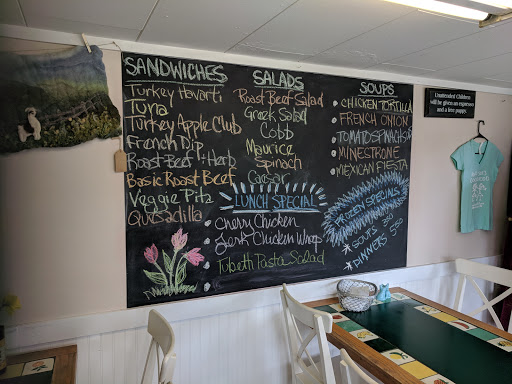 SANDWICHES
Turkey Havarti
Tuna
Turkey Apple Club
French Dip
Roast Beef + Herb
Basic Roast Beef
Veggie Pita
Quesadilla
SALADS
Roast Beef Salad
Greek Salad
Cobb
Maurice
Spinach
Caesar
LUNCH SPECIAL
Cherry Chicken
Jerk Chicken Wrap
Tubetti Pasta Salad
SOUPS
CHICKEN TORTILLA
FRENCH ONION
TOMATO SPINACH
MINESTRONE
MEXICAN FIESTA
FROZEN SPECIALS
SOUPS
DINNERS
Unattended Children
will be given an espresso
and a free puppy.